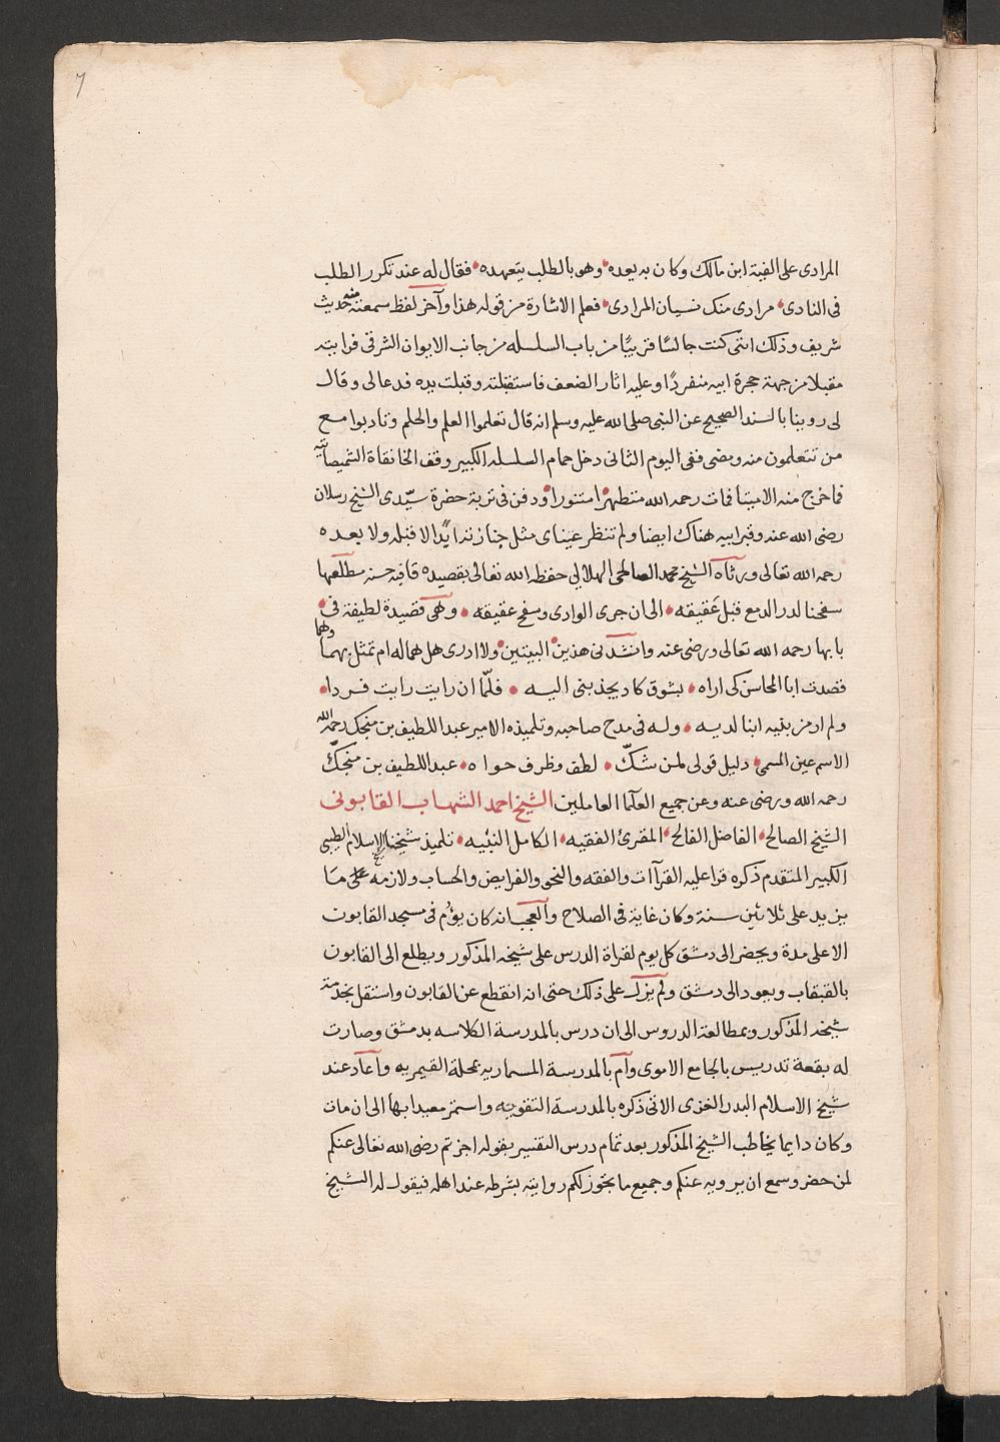 7
المرادى على الفية ابن مالك وكان به يعده وهو بالطلب يتعهده فقال له عند تكرر الطلب
فى النادى مرادى منك نسيان المرادى فعلم الاشارة من قوله هذا وآخر لفظ سمعته منه حديث
شريف وذلك اننى كنت جالسًا قريبًا من باب السلسله من جانب الايوان الشرقى فرايته
مقبلا من جهة حجرة ابيه منفردًا وعليه اثار الضعف فاستقبلته وقبلت يده فدعا لى وقال
لى روينا بالسند الصحيح عن النبى صلى الله عليه وسلم انه قال تعلموا العلم والحلم وتادبوا مع
من تتعلمون منه ومضى ففى اليوم الثانى دخل حمام السلسله الكبير وقف الخانقاة الشميصاتيه
فاخرج منه الاميتا فمات رحمه الله متطهرا متنورا ودفن فى تربة حضرة سيّدى الشيخ رسلان
رضى الله عنه وقبر ابيه هناك ايضا ولم تنظر عيناى مثل جنازته ابدًا لا قبله ولا بعده
رحمه الله تعالى ورثاه الشيخ محمد الصالحى الهلالى حفظه الله تعالى بقصيده قافيه حسنه مطلعها
سفحنا لدر الدمع قبل عقيقه الى ان جرى الوادى وسفح عقيقه وهى قصيدة لطيفة فى
بابها رحمه الله تعالى ورضى عنه وانشدنى هذين البيتين ولا ادرى هل هما له ام تمثل بهما وهما
قصدت ابا المحاسن كى اراه بشوق كاد يجذبنى اليه فلمّا ان رايت رايت فردا
ولم ار من بنيه ابنا لديه وله فى مدح صاحبه وتلميذه الامير عبد اللطيف بن منجك رحمه الله
الاسم عين المسمى دليل قولى لمن شكّ لطف وظرف حواه عبد اللطيف بن منجكّ
رحمه الله ورضى عنه وعن جميع العلما العاملين الشيخ احمد الشهاب القابونى
الشيخ الصالح الفاضل الفالح المقرئ الفقيه الكامل النبيه تلميذ شيخ الاسلام الطيبى
الكبير المتقدم ذكره قرا عليه القرآات والفقه والنحو والفرايض والحساب ولازمه على ما
يزيد على ثلاثين سنة وكان غاية فى الصلاح والعجب انه كان يؤم فى مسجد القابون
الاعلى مدة ويحضر الى دمشق كل يوم لقراة الدرس على شيخه المذكور ويطلع الى القابون
بالقبقاب ويعود الى دمشق ولم يزل على ذلك حتى انه انقطع عن القابون واستقل بخدمة
شيخه المذكور وبمطالعة الدروس الى ان درس بالمدرسة الكلاسه بدمشق وصارت
له بقعة تدريس بالجامع الاموى وآم بالمدرسة المسماريه بمحلة القيمريه وآعاد عند
شيخ الاسلام البدر الغزى الاتى ذكره بالمدرسة التقويه واستمر معيدا بها الى ان مات
وكان دايما يخاطب الشيخ المذكور بعد تمام درس التفسير بقوله اجزتم رضى الله تعالى عنكم
لمن حضر وسمع ان يرويه عنكم وجميع ما يجوز لكم روايته بشرطه عند اهله فيقول له الشيخ